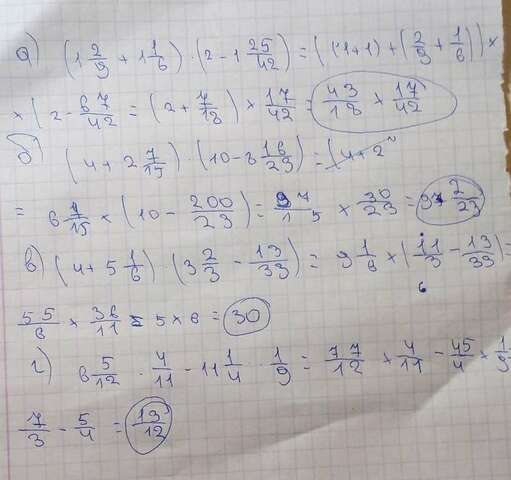 а) (1 2/9 + 1 1/6) · (2 - 1 25/42) = ((1+1) + (2/9 + 1/6)) ×
× (2 - 67/42 = (2 + 7/18) × 17/42 = 43/18 × 17/42
б) (4 + 2 7/15) · (10 - 8 16/23) = (4+2
= 6 7/15 × (10 - 200/23) = 97/15 × 30/23 = 97 2/23
в) (4 + 5 1/6) · (3 2/3 - 13/33) = 9 1/6 × (11/3 - 13/33) =
55/6 × 36/11 = 5 × 6 = 30
г) 6 5/12 · 4/11 - 11 1/4 · 1/9 = 77/12 × 4/11 - 45/4 × 1/9
7/3 - 5/4 = 13/12